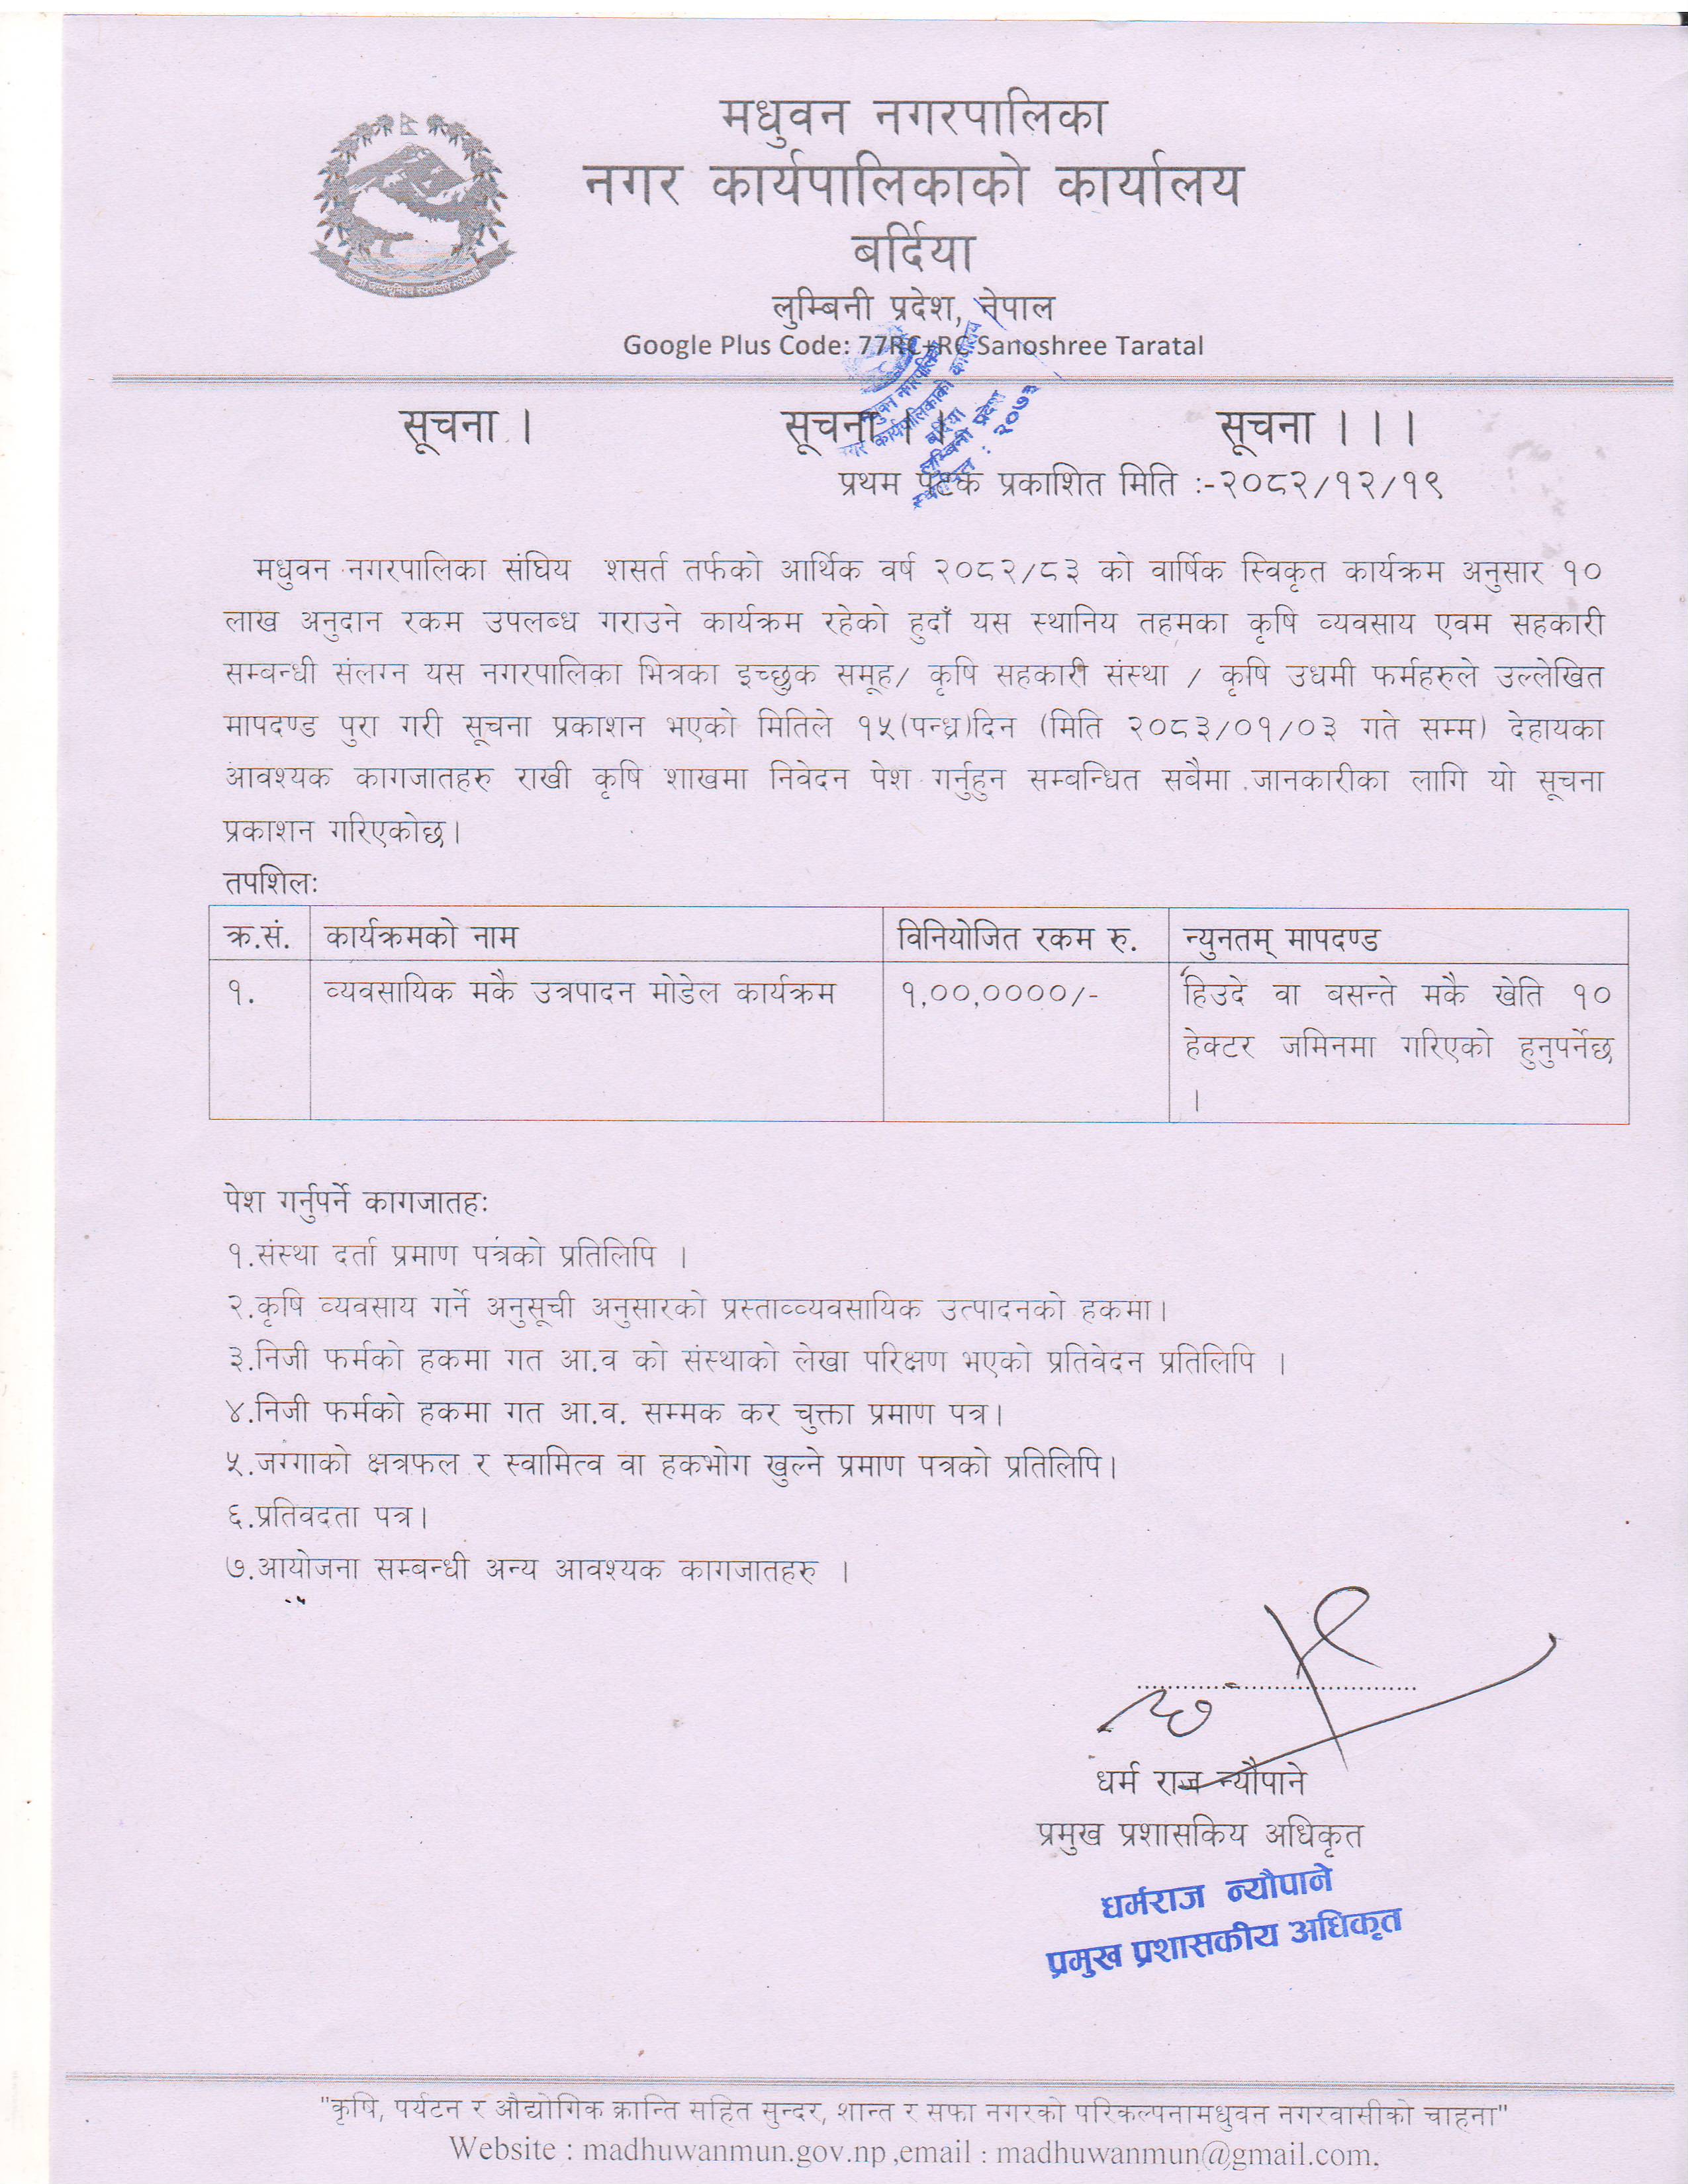 मधुवन नगरपालिका
नगर कार्यपालिकाको कार्यालय
बर्दिया
लुम्बिनी प्रदेश, नेपाल
Google Plus Code: 77RC+RC Sanoshree Taratal
मधुवन नगरपालिका
नगर कार्यपालिकाको कार्यालय
बर्दिया
लुम्बिनी प्रदेश
स्थापित : २०७३
सूचना । सूचना ।। सूचना ।।।
प्रथम पटक प्रकाशित मिति :-२०८२/१२/१९
मधुवन नगरपालिका संघिय शसर्त तर्फको आर्थिक वर्ष २०८२/८३ को वार्षिक स्विकृत कार्यक्रम अनुसार १०
लाख अनुदान रकम उपलब्ध गराउने कार्यक्रम रहेको हुदाँ यस स्थानिय तहमका कृषि व्यवसाय एवम सहकारी
सम्बन्धी संलग्न यस नगरपालिका भित्रका इच्छुक समूह/ कृषि सहकारी संस्था / कृषि उधमी फर्महरुले उल्लेखित
मापदण्ड पुरा गरी सूचना प्रकाशन भएको मितिले १५(पन्ध्र)दिन (मिति २०८३/०१/०३ गते सम्म) देहायका
आवश्यक कागजातहरु राखी कृषि शाखमा निवेदन पेश गर्नुहुन सम्बन्धित सवैमा जानकारीका लागि यो सूचना
प्रकाशन गरिएकोछ।
तपशिलः
क्र.सं. कार्यक्रमको नाम विनियोजित रकम रु. न्युनतम् मापदण्ड
१. व्यवसायिक मकै उत्रपादन मोडेल कार्यक्रम १,००,००००/- हिउदे वा वसन्ते मकै खेति १०
हेक्टर जमिनमा गरिएको हुनुपर्नेछ
।
पेश गर्नुपर्ने कागजातहः
१.संस्था दर्ता प्रमाण पत्रको प्रतिलिपि ।
२.कृषि व्यवसाय गर्ने अनुसूची अनुसारको प्रस्ताव्व्यवसायिक उत्पादनको हकमा।
३.निजी फर्मको हकमा गत आ.व को संस्थाको लेखा परिक्षण भएको प्रतिवेदन प्रतिलिपि ।
४.निजी फर्मको हकमा गत आ.व. सम्मक कर चुक्ता प्रमाण पत्र।
५.जग्गाको क्षत्रफल र स्वामित्व वा हकभोग खुल्ने प्रमाण पत्रको प्रतिलिपि।
६.प्रतिवदता पत्र।
७.आयोजना सम्बन्धी अन्य आवश्यक कागजातहरु ।
धर्म राज न्यौपाने
प्रमुख प्रशासकिय अधिकृत
धर्मराज न्यौपाने
प्रमुख प्रशासकीय अधिकृत
"कृषि, पर्यटन र औद्योगिक क्रान्ति सहित सुन्दर, शान्त र सफा नगरको परिकल्पनामधुवन नगरवासीको चाहना"
Website : madhuwanmun.gov.np ,email : madhuwanmun@gmail.com,